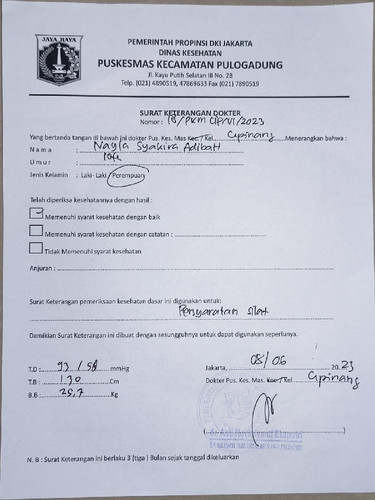 JAYA RAYA
PEMERINTAH PROPINSI DKI JAKARTA
DINAS KESEHATAN
PUSKESMAS KECAMATAN PULOGADUNG
Jl. Kayu Putih Selatan III No. 2B
Telp. (021) 4890519, 47869633 Fax (021) 7890519
SURAT KETERANGAN DOKTER
Nomor : 18/PKM CIP/VI/2023
Yang bertanda tangan di bawah ini dokter Pus. Kes. Mas Kec/Kel Cipinang Menerangkan bahwa :
Nama : Nayla Syakira Adibah
Umur :
Jenis Kelamin : Laki- Laki / Perempuan
Telah diperiksa kesehatannya dengan hasil :
Memenuhi syarat kesehatan dengan baik
Memenuhi syarat kesehatan dengan catatan :
Tidak Memenuhi syarat kesehatan
Anjuran :
Surat Keterangan pemeriksaan kesehatan dasar ini digunakan untuk:
Persyaratan silat
Demikian Surat Keterangan ini dibuat dengan sesungguhnya untuk dapat digunakan seperlunya.
T.D : 93 / 58 mmHg
T.B : 130 Cm
B.B : 25,7 Kg
Jakarta, 08/06 2023
Dokter Pus. Kes. Mas. Kec/Kel Cipinang
N. B : Surat Keterangan ini berlaku 3 (tiga) Bulan sejak tanggal dikeluarkan